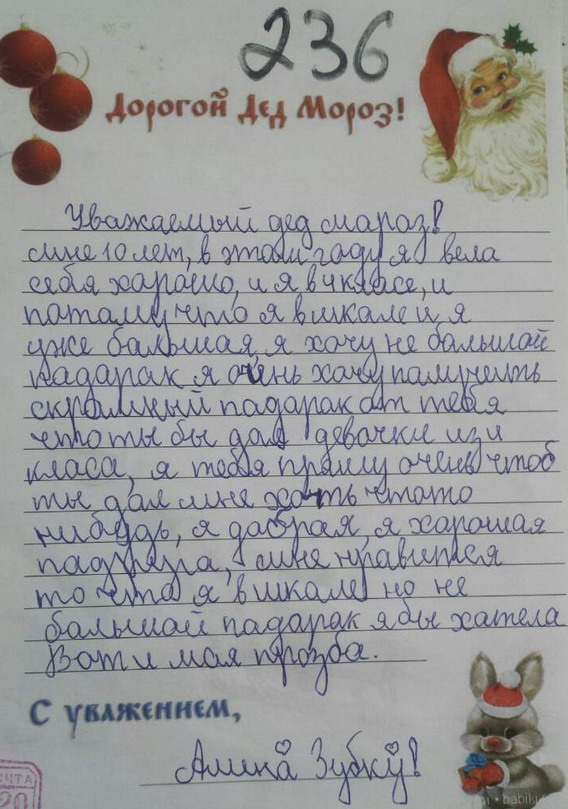 236
Дорогой Дед Мороз!
Уважаемый дед мараз!
мне 10 лет, в этом гаду я вела
себя харашо, и я в 4 класе, и
патамучто я в шкале и я
уже бальшая, я хочу не балшой
падарак я очень хачу палучить
скромный падарак от тебя
что ты бы дал девачки из 4
класа, я тебя прашу очень чтоб
ты дал мне хоть штото
нибудь, я добрая, я харошая
падруга, мне нравится
то что я в шкале но не
бальшой падарак я бы хатела
Вот и мая прозба.
С уважением,
Алина Зубку!
ЧТА
20
babiki